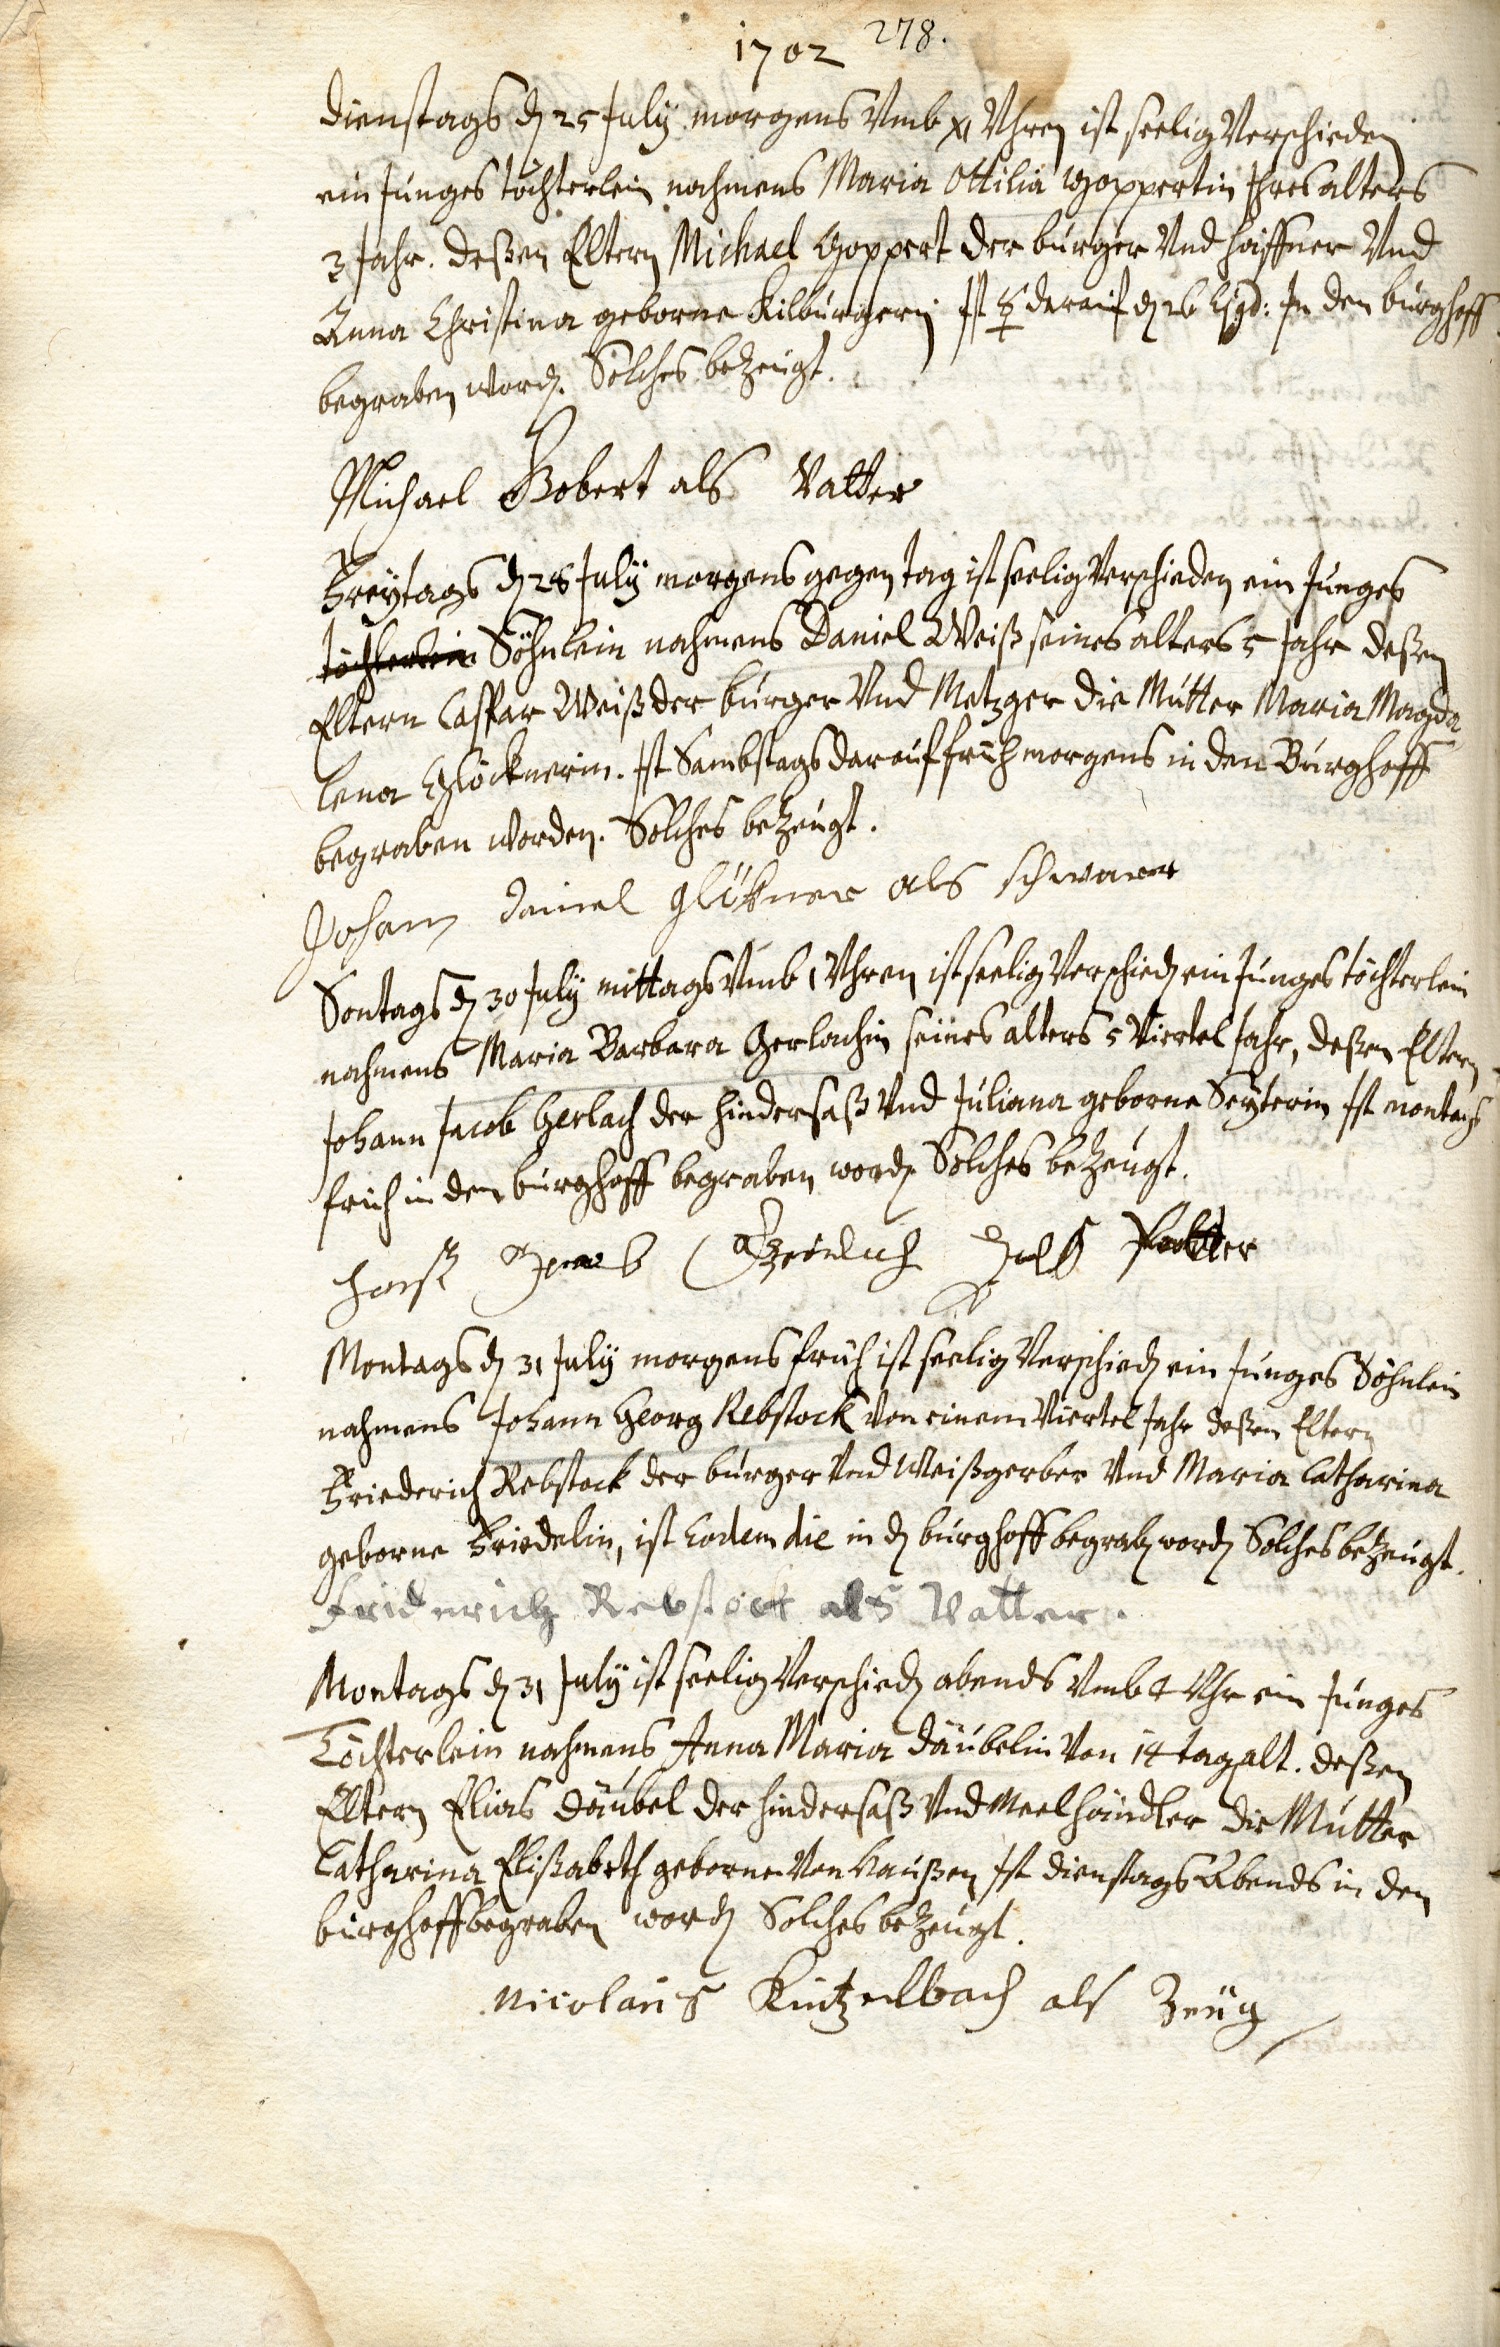 1702 278.
Dienstags dn 25 July morgens Vmb XI Vhren ist seelig Verschieden
ein Junges töchterlein nahmens Maria Ottilia Goppertin Ihres alters
3 Jahr. deßen Eltern Michael Goppert der burger Vnd haffner Vnd
Anna Christina geborne Kilburgerin Ist darauf dn 26 In den burghoff
begraben word. Solches bezeugt.
Michael Gobert als Vatter
Freytags dn 28 July morgens gegen tag ist seelig Verschieden ein Junges
töchterlein Söhnlein nahmens Daniel Weiß seines alters 5 Jahr deßen
Eltern Caspar Weiß der burger Vnd Metzger die Mutter Maria Magda
lena Glöcknerin. Ist Sambstags darauf früh morgens in den Burghoff
begraben worden. Solches bezeugt.
Johann Daniel Glükner als schwarer
Sontags dn 30 July mittags Vmb 1 Vhren ist seelig Verschiedn ein Junges töchterlein
nahmens Maria Barbara Gerlachin seines alters 5 Viertel Jahr, deßen Eltern
Johann Jacob Gerlach der hindersaß Vnd Juliana geborne Seyterin Ist montags
früh in den burghoff begraben wordn Solches bezeugt.
als Vatter
Montags dn 31 July morgens früh ist seelig Verschiedn ein Junges Söhnlein
nahmens Johann Georg Rebstock von einem Viertel Jahr deßen Eltern
Friederich Rebstock der burger Vnd Weißgerber Vnd Maria Catharina
geborne Friedelin, ist Eodem die in dn burghoff begrabn wordn Solches bezeugt.
Friderich Rebstock als Vatter.
Montags dn 31 July ist seelig Verschiedn abends Vmb 4 Vhr ein Junges
Töchterlein nahmens Anna Maria Däubelin Von 14 tag alt. deßen
Eltern Elias Däubel der hindersaß Vnd Meelhändler die Mutter
Catharina Elißabeth geborne Von Haußen Ist dienstags Abends in den
burghoff begraben wordn Solches bezeugt.
Nicolaus Kintzelbach als Zeug